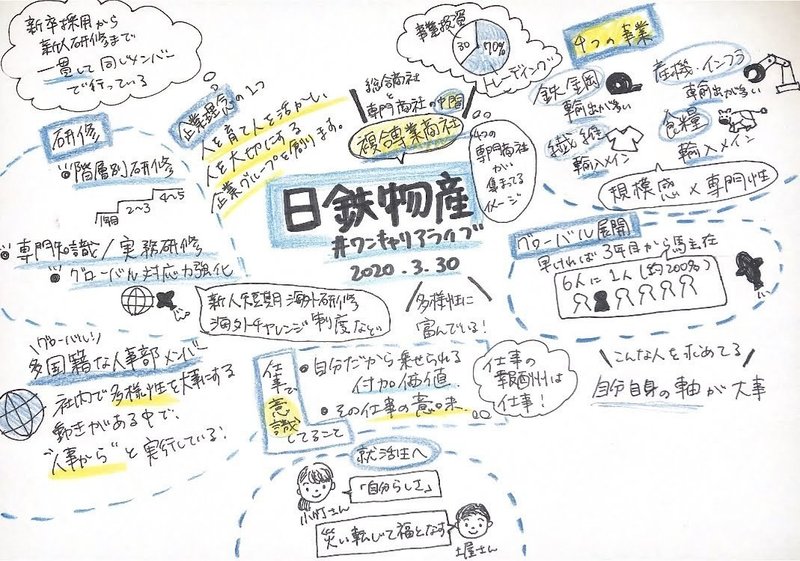 新卒採用から
新人研修まで
一貫して同じメンバー
で行っている
企業理念の1つ
人を育て人を活かし、
人を大切にする
企業グループを創ります。
事業投資
30
70%
トレーディング
総合商社
と
専門商社の中間
複合専業商社
4つの
専門商社
が
集まってる
イメージ
日鉄物産
#ワンキャリアライブ
2020.3.30
4つの事業
鉄鋼
輸出が多い
産機・インフラ
輸出が多い
繊維
輸入メイン
食糧
輸入メイン
規模感×専門性
研修
階層別研修
1年目
2~3
4~5
専門知識/実務研修
グローバル対応力強化
新人短期海外研修
海外チャレンジ制度など
グローバル展開
早ければ3年目から駐在
6人に1人(約200%)
多様性に
富んでいる!
グローバル!
多国籍な人事部メンバー
社内で多様性を大事にする
動きがある中で、
"人事から"と実行している!
仕事で意識してること
自分だから乗せられる
付加価値
その仕事の意味。
仕事の
報酬は
仕事!
こんな人を求めてる
自分自身の軸が大事
就活生へ
小町さん
「自分らしさ」
災い転じて福となす
土屋さん